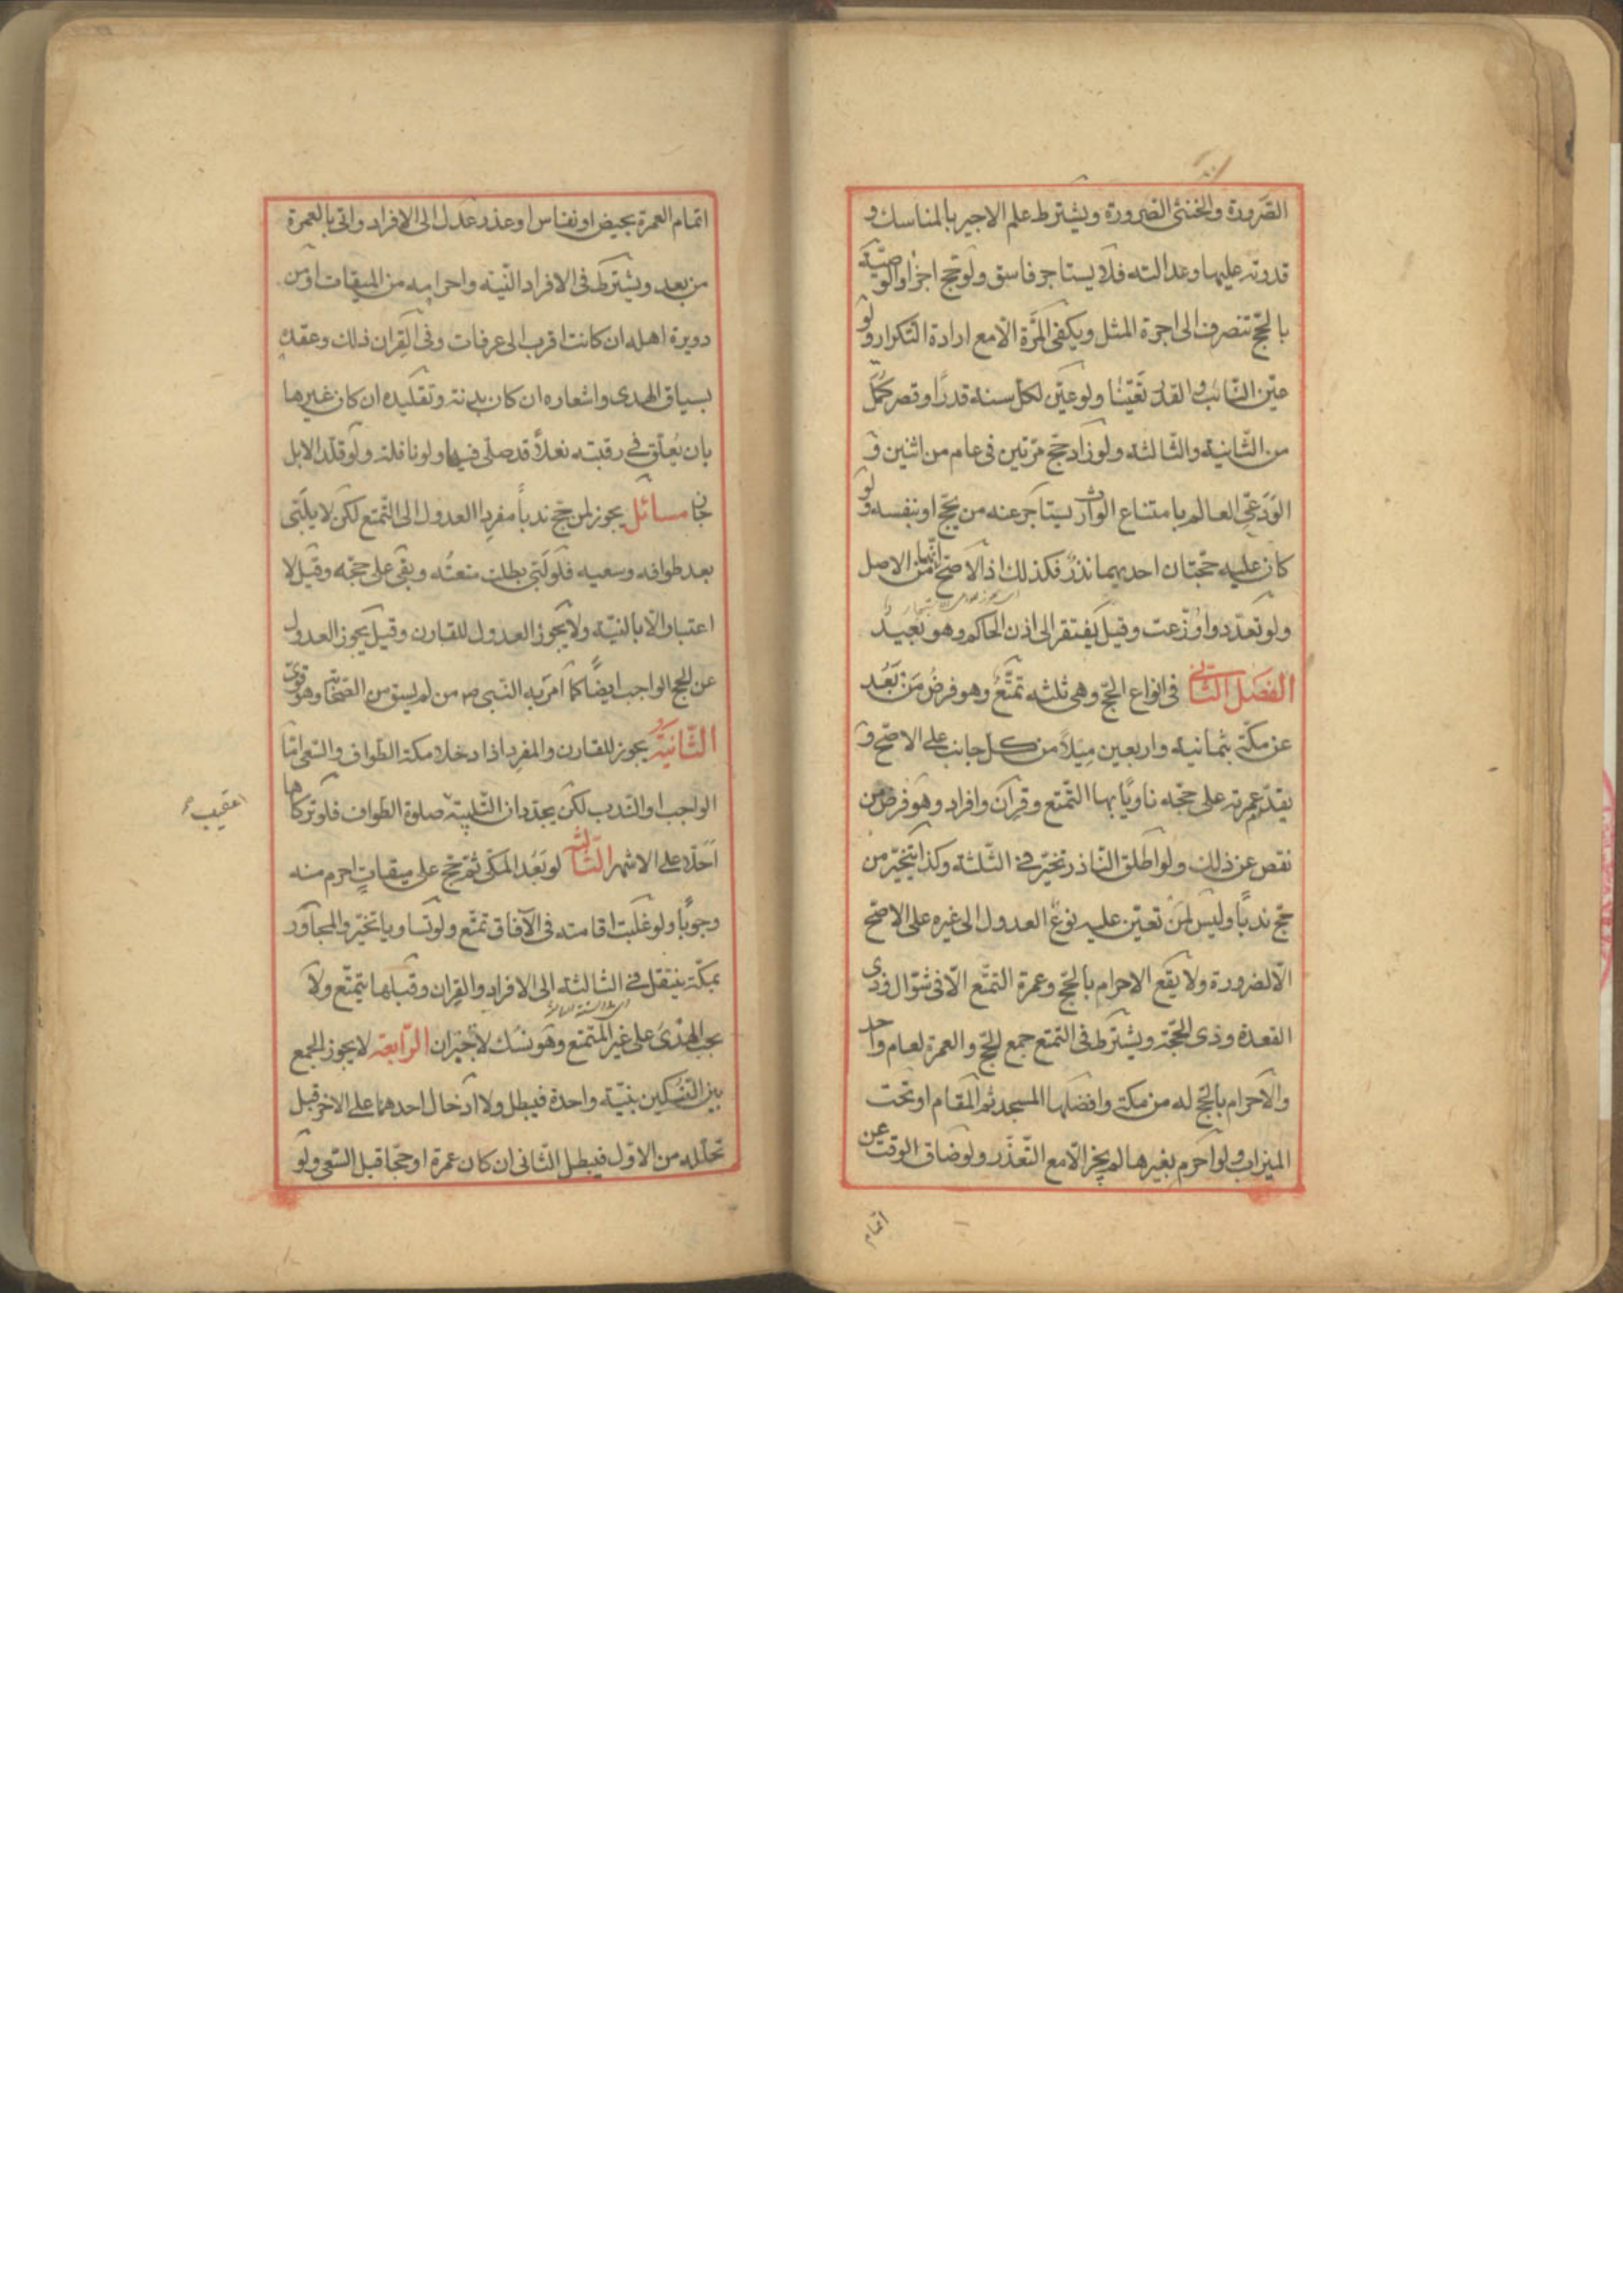 الصّرورة والخنثى الصّرورة ويشترط علم الاجير بالمناسك و
قدرته عليها وعدالته فلا يستاجر فاسق ولو حج اجزا والوصيّة
بالحجّ تنصرف الى اجرة المثل ويكفى المرّة الّا مع ارادة التكرار ولو
عيّن النّائب والقدر تعيّنا ولو عيّن لكلّ سنة قدرًا وقصر كمّل
من الثّانية والثّالثة ولو زاد حجّ مرّتين فى عام من اثنين و
الودعىّ العالم بامتناع الوارث يستاجر عنه من يحجّ او بنفسه ولو
كان عليه حجّتان احديهما نذرٌ فكذلك اذ الاصحّ انّهما من الاصل
ولو تعدّدوا وُزّعت وقيل يفتقر الى اذن الحاكم وهو بعيد
الفصل الثّانى فى انواع الحجّ وهى ثلثة تمتّعٌ وهو فرضُ مَن بَعُد
عن مكّة بثمانية واربعين ميلًا من كل جانب على الاصحّ و
يقدّم عمرته على حجّه ناويًا بها التّمتع وقران وافراد وهو فرض من
نقص عن ذلك ولو اطلق النّاذر تخيّر فى الثّلثة وكذا يتخيّر من
حجّ ندبًا وليس لمن تعيّن عليه نوع العدول الى غيره على الاصحّ
الّا لضرورة ولا يقع الاحرام بالحجّ وعمرة التمتّع الّا فى شوّال وذى
القعدة وذى الحجّة ويشترط فى التمتع جمع الحجّ والعمرة لعام واحد
والاحرام بالحجّ له من مكّة وافضلها المسجد ثم المقام او تحت
الميزاب ولو احرم بغيرها لم يجز الّا مع التّعذّر ولو ضاق الوقت عن
اتمام
اتمام العمرة بحيض او نفاس او عذر عدل الى الافراد واتى بالعمرة
من بعد ويشترط فى الافراد النّية واحرامه من الميقات او من
دويرة اهله ان كانت اقرب الى عرفات وفى القِران ذلك وعقده
بسياق الهدى واشعاره ان كان بدنة وتقليده ان كان غيرها
بان يُعلّق فى رقبته نعلًا قد صلّى فيها ولو نافلة ولو قلّد الابل
جاز مسائل يجوز لمن حج ندبًا مفرِدا العدول الى التّمتع لكن لا يلبّى
بعد طوافه وسعيه فلو لبّى بطلت متعتُه وبقى على حجّه وقيل لا
اعتبار الّا بالنيّة ولا يجوز العدول للقارن وقيل يجوز العدول
عن الحج الواجب ايضًا كما امر به النّبى ص من لم يسق من الصّحابة وهو قوىّ
الثّانيةُ يجوز للقارن والمفرِد اذا دخلا مكة الطّواف والسّعى امّا
الواجب او النّدب لكن يجدّدان التّلبية صلوة الطّواف فلو تركاها
عقيب صح
احلّا على الاشهر الثّالثة لو بَعُد المكّى ثم حجّ على ميقاتٍ احرم منه
وجوبًا ولو غلبت اقامته فى الآفاق تمتّع ولو تساويا تخيّر والمجاور
بمكّة ينتقل فى الثالثة الى الافراد والقران وقبلها يتمتّع ولا
يجب الهدىُ على غير المتمتع وهو نسُك لا جبران الرّابعة لا يجوز الجمع
بين النّسُكين بنيّة واحدة فيبطل ولا ادخال احدهما على الاخر قبل
تحلّله من الاوّل فيبطل الثّانى ان كان عمرة او حجّا قبل السّعى ولو